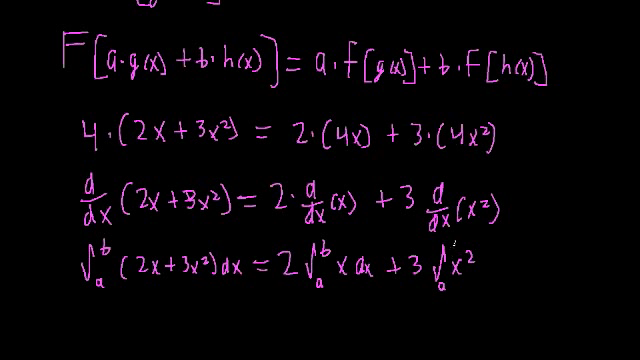 F[a·g(x) + b·h(x)] = a·F[g(x)] + b·F[h(x)]
4·(2x + 3x²) = 2·(4x) + 3·(4x²)
d/dx (2x + 3x²) = 2·d/dx (x) + 3 d/dx (x²)
∫ₐᵇ (2x + 3x²) dx = 2 ∫ₐᵇ x dx + 3 ∫ₐ x²